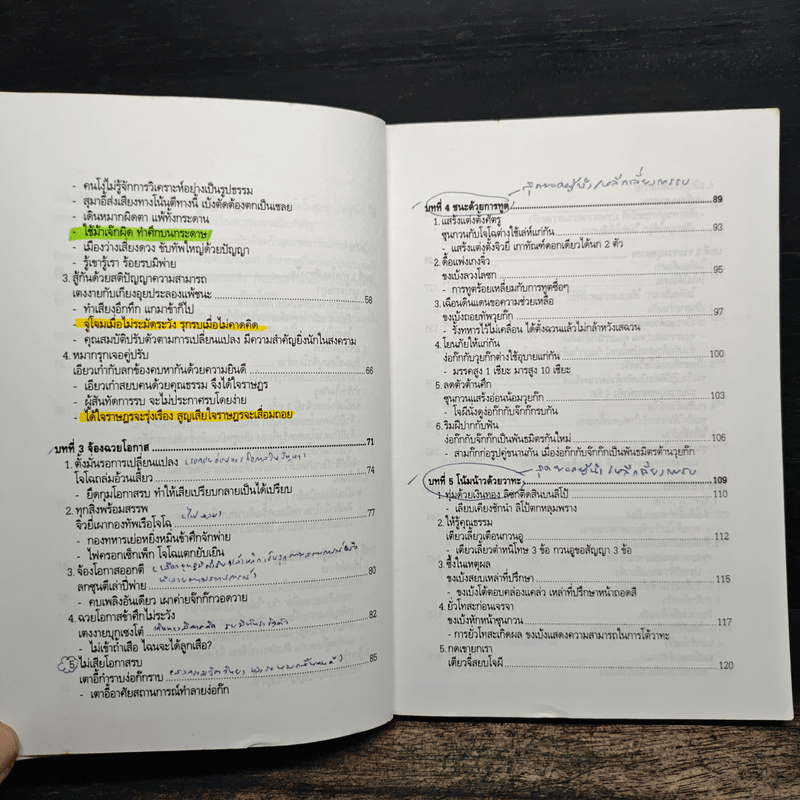 - คนโง่ไม่รู้จักการวิเคราะห์อย่างเป็นรูปธรรม
- สุมาอี้ส่งเสียงทางโน้นตีทางนี้ เบ้งตัดต้องตกเป็นเชลย
- เดินหมากผิดตา แพ้ทั้งกระดาน
- ใช้ม้าเจ๊กผิด ทำศึกบนกระดาษ
- เมืองว่างเสี่ยงดวง ขับทัพใหญ่ด้วยปัญญา
- รู้เขารู้เรา ร้อยรบมิพ่าย
3. สู้กันด้วยสติปัญญาความสามารถ
เตงงายกับเกียงอุยประลองแพ้ชนะ 58
- ทำเสียงอึกทึก แกมาข้าก็ไป
- จู่โจมเมื่อไม่ระมัดระวัง รุกรบเมื่อไม่คาดคิด
- คุณสมบัติปรับตัวตามการเปลี่ยนแปลง มีความสำคัญยิ่งนักในสงคราม
4. หมากรุกเจอคู่ปรับ
เอียวเก๋ากับลกข้องคบหากันด้วยความยินดี 66
- เอียวเก๋าสยบคนด้วยคุณธรรม จึงได้ใจราษฎร
- ผู้สันทัดการรบ จะไม่ประกาศรบโดยง่าย
- ได้ใจราษฎรจะรุ่งเรือง สูญเสียใจราษฎรจะเสื่อมถอย
บทที่ 3 จ้องฉวยโอกาส 71
1. ตั้งมั่นรอการเปลี่ยนแปลง
โจโฉถล่มอ้วนเสี้ยว 74
- ยึดกุมโอกาสรบ ทำให้เสียเปรียบกลายเป็นได้เปรียบ
2. ทุกสิ่งพร้อมสรรพ
จิวยี่เผากองทัพเรือโจโฉ 77
- กองทหารเย่อหยิ่งหมิ่นข้าศึกจักพ่าย
- ไฟครอกเซ็กเพ็ก โจโฉแตกยับเยิน
3. จ้องโอกาสออกตี
ลกซุนตีเล่าปี่พ่าย 80
- คบเพลิงอันเดียว เผาค่ายจ๊กก๊กวอดวาย
4. ฉวยโอกาสข้าศึกไม่ระวัง
เตงงายบุกเซงโต๋ 82
- ไม่เข้าถ้ำเสือ ไฉนจะได้ลูกเสือ?
5. ไม่เสียโอกาสรบ
เตาอี้กำราบง่อก๊กราบ 85
- เตาอี้อาศัยสถานการณ์ทำลายง่อก๊ก
บทที่ 4 ชนะด้วยการทูต 89
1. แสร้งแต่งตั้งศัตรู
ซุนกวนกับโจโฉต่างใช้เล่ห์แก่กัน 93
- แสร้งแต่งตั้งจิวยี่ เกาทัณฑ์ดอกเดียวได้นก 2 ตัว
2. ดื้อแพ่งเกงจิ๋ว
ขงเบ้งลวงโลซก 95
- การทูตร้อยเหลี่ยมกับการทูตซื่อๆ
3. เฉือนดินแดนขอความช่วยเหลือ
ขงเบ้งถอยทัพวุยก๊ก 97
- รั้งทหารไว้ไม่เคลื่อน ได้ตั้งฉวนแล้วไม่กล้าหวังเสฉวน
4. โยนภัยให้แก่กัน
ง่อก๊กกับวุยก๊กต่างใช้อุบายแก่กัน 100
- มรรคสูง 1 เชียะ มารสูง 10 เชียะ
5. ลดตัวต้านศึก
ซุนกวนแสร้งอ่อนน้อมวุยก๊ก 103
- โจผีนั่งดูง่อก๊กกับจ๊กก๊กรบกัน
6. ริมฝีปากกับฟัน
ง่อก๊กกับจ๊กก๊กเป็นพันธมิตรกันใหม่ 106
- สามก๊กก่อรูปคู่ขนานกัน เมื่อง่อก๊กกับจ๊กก๊กเป็นพันธมิตรต้านวุยก๊ก
บทที่ 5 โน้มน้าวด้วยวาทะ 109
1. ทุ่มด้วยเงินทอง ลิซกติดสินบนลิโป้ 110
- เลียบเคียงชักนำ ลิโป้ตกหลุมพราง
2. ให้รู้คุณธรรม
เตียวเลี้ยวเตือนกวนอู 112
- เตียวเลี้ยวตำหนิโทษ 3 ข้อ กวนอูขอสัญญา 3 ข้อ
3. ซึ้งในเหตุผล
ขงเบ้งสยบเหล่าที่ปรึกษา 115
- ขงเบ้งโต้ตอบคล่องแคล่ว เหล่าที่ปรึกษาหน้าถอดสี
4. ยั่วโทสะก่อนเจรจา
ขงเบ้งหักหน้าซุนกวน 117
- การยั่วโทสะเกิดผล ขงเบ้งแสดงความสามารถในการโต้วาทะ
5. กดเขายกเรา
เตียวจี๋สยบโจผี 120